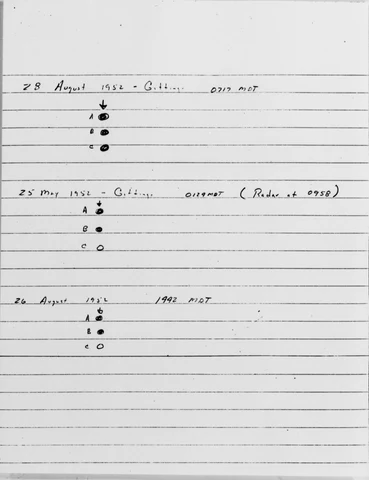 28 August 1952 - Gittings 0717 MDT
A
B
C
25 May 1952 - Gittings 0129 MDT (Radar at 0958)
A
B
C
26 August 1952 1942 MDT
A
B
C